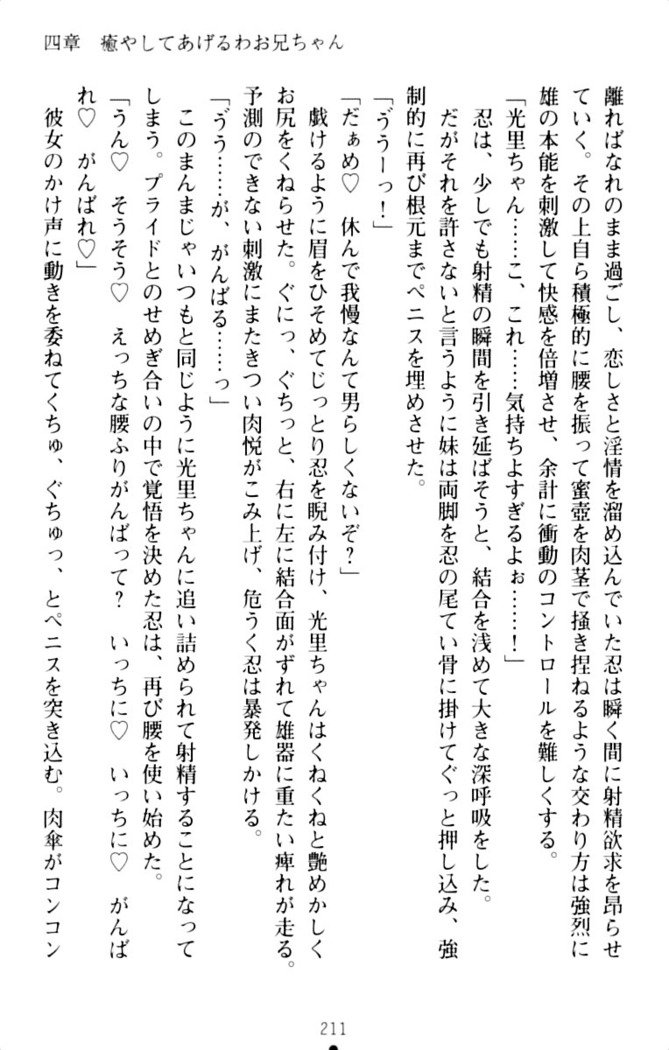 四章 癒やしてあげるわお兄ちゃん
離ればなれのまま過ごし、恋しさと淫情を溜め込んでいた忍は瞬く間に射精欲求を昂らせ
ていく。その上自ら積極的に腰を振って蜜壺を肉茎で掻き捏ねるような交わり方は強烈に
雄の本能を刺激して快感を倍増させ、余計に衝動のコントロールを難しくする。
「光里ちゃん……こ、これ……気持ちよすぎるよぉ……！」
忍は、少しでも射精の瞬間を引き延ばそうと、結合を浅めて大きな深呼吸をした。
だがそれを許さないと言うように妹は両脚を忍の尾てい骨に掛けてぐっと押し込み、強
制的に再び根元までペニスを埋めさせた。
「ゔうーっ！」
「だぁめ♡ 休んで我慢なんて男らしくないぞ？」
戯けるように眉をひそめてじっとり忍を睨み付け、光里ちゃんはくねくねと艶めかしく
お尻をくねらせた。ぐにっ、ぐちっと、右に左に結合面がずれて雄器に重たい痺れが走る。
予測のできない刺激にまたきつい肉悦がこみ上げ、危うく忍は暴発しかける。
「ゔう……が、がんばる……っ」
このまんまじゃいつもと同じように光里ちゃんに追い詰められて射精することになって
しまう。プライドとのせめぎ合いの中で覚悟を決めた忍は、再び腰を使い始めた。
「うん♡ そうそう♡ えっちな腰ふりがんばって？ いっちに♡ いっちに♡ がんば
れ♡ がんばれ♡」
彼女のかけ声に動きを委ねてくちゅ、ぐちゅっ、とペニスを突き込む。肉傘がコンコン
211